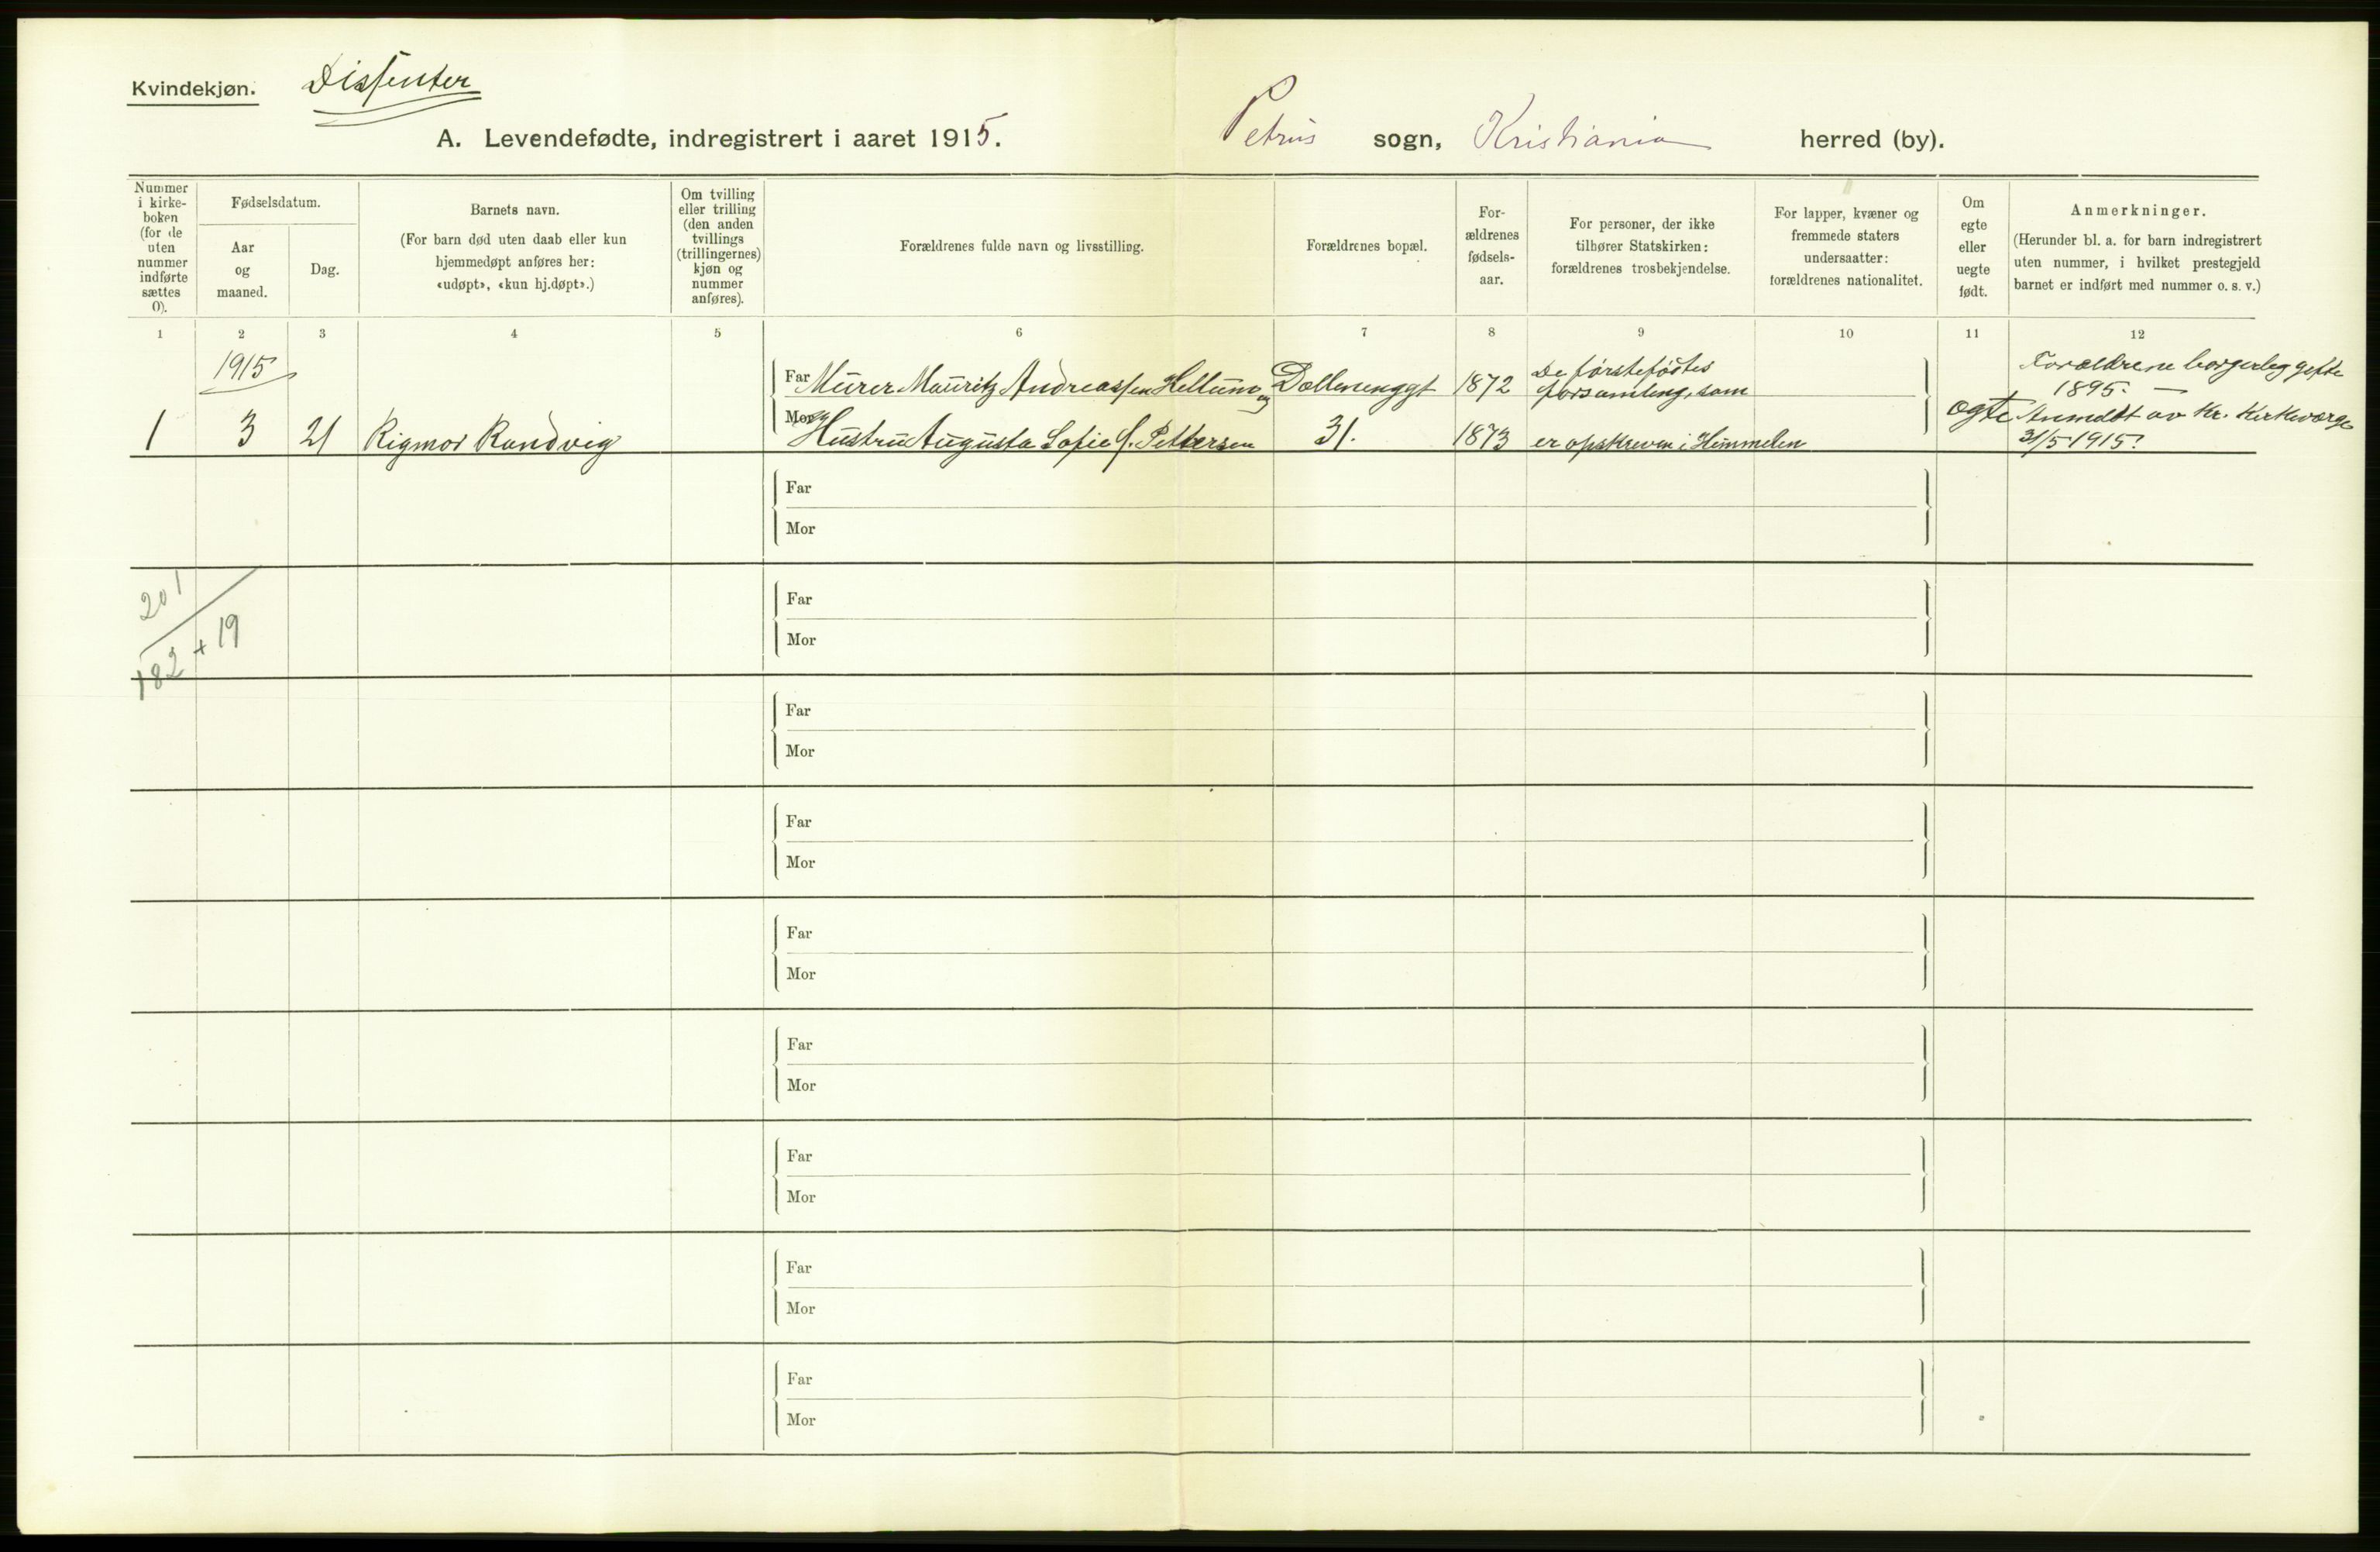 Kvindekjøn. Dissenter
A. Levendefødte, indregistrert i aaret 1915. Petrus sogn, Kristiania herred (by).
Nummer
i kirke-
boken
(for de
uten
nummer
indførte
sættes
0).
Fødselsdatum.
Aar
og
maaned.
Dag.
Barnets navn.
(For barn død uten daab eller kun
hjemmedøpt anføres her:
«udøpt», «kun hj.døpt».)
Om tvilling
eller trilling
(den anden
tvillings
(trillingernes)
kjøn og
nummer
anføres).
Forældrenes fulde navn og livsstilling.
Forældrenes bopæl.
For-
ældrenes
fødsels-
aar.
For personer, der ikke
tilhører Statskirken:
forældrenes trosbekjendelse.
For lapper, kvæner og
fremmede staters
undersaatter:
forældrenes nationalitet.
Om
egte
eller
uegte
født.
Anmerkninger.
(Herunder bl. a. for barn indregistrert
uten nummer, i hvilket prestegjeld
barnet er indført med nummer o. s. v.)
1 2 3 4 5 6 7 8 9 10 11 12
1915
1 3 21 Rigmor Randvig
Far Murer Mauritz Andreassen Hellum og
Mor Hustru Augusta Sofie f. Pettersen
Dællenenggt
31.
1872
1873
De førstefödtes
forsamling, som
er opskreven i Himmelen
egte
Forældrene borgerlig gifte
1895. —
Anmeldt av Kr. Kirkeværge
31/5 1915.
Far
Mor
201
182 + 19
Far
Mor
Far
Mor
Far
Mor
Far
Mor
Far
Mor
Far
Mor
Far
Mor
Far
Mor